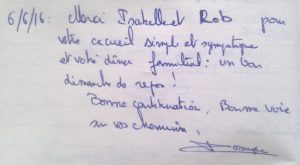 6/6/16: Merci Isabelle et Rob pour
votre accueil simple et sympatique
et votre dîner familial : un bon
dimanche de repos !
Bonne continuation, Bonne voie
sur vos chemins,